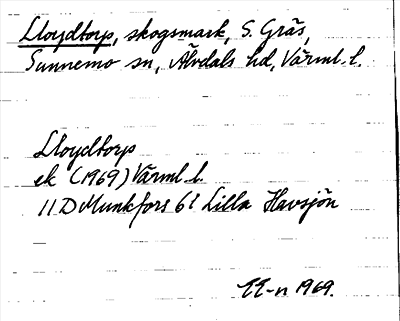 Lloydtorp, skogsmark, S. Gräs,
Sunnemo sn, Älvdals hd, Värml. l.
Lloydtorp
ek (1969) Värml. l.
11D Munkfors 6i Lilla Havsjön
EE-n 1969.